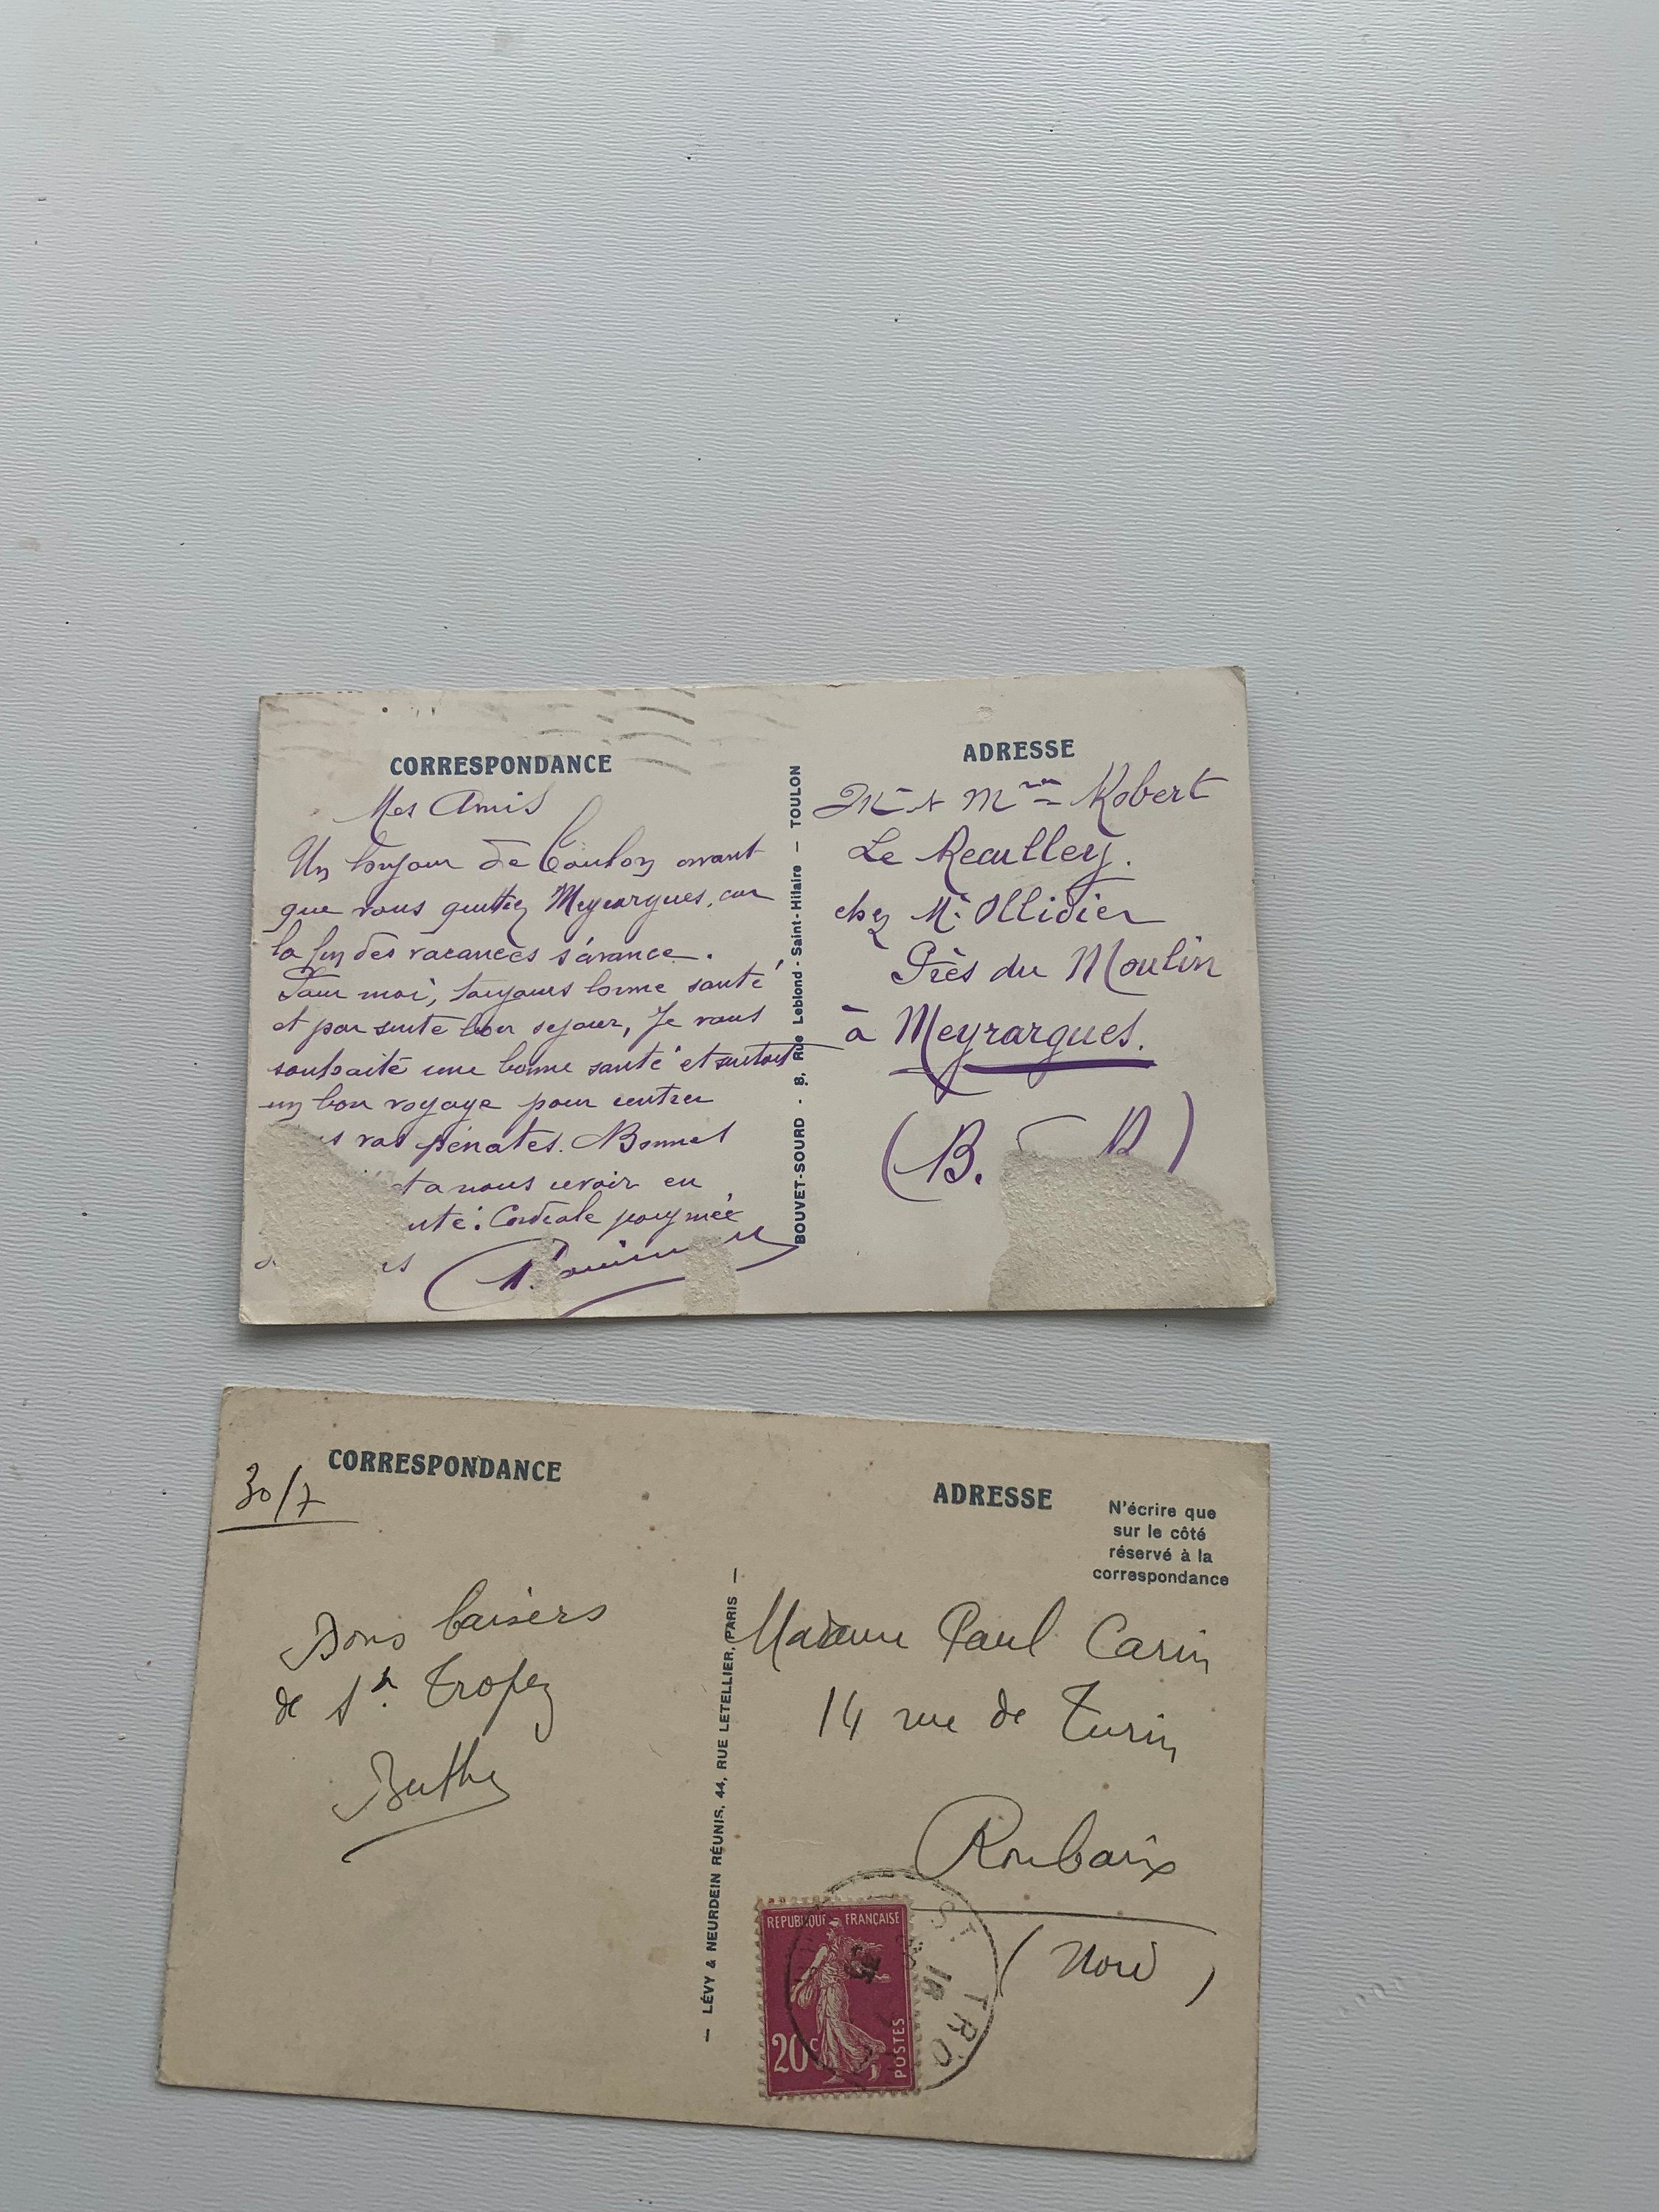 CORRESPONDANCE
Mes Amis
Un bonjour de Toulon avant
que vous quittiez Meyrargues, car
la fin des vacances s'avance.
Pour moi, toujours bonne santé
et par suite bon séjour, Je vous
souhaite une bonne santé et surtout
un bon voyage pour rentrer
vos pénates. Bonnes
et a nous revoir en
Cordiale poignée
BOUVET-SOURD - 8, Rue Leblond - Saint-Hilaire — TOULON
ADRESSE
Mr & Mme Robert
Le Reculley.
chez Mr Ollidier
Près du Moulin
à Meyrargues.
(B. R)
CORRESPONDANCE
30/7
Bons baisers
de St. Tropez
Berthe
— LÉVY & NEURDEIN RÉUNIS, 44, RUE LETELLIER, PARIS —
ADRESSE
N'écrire que
sur le côté
réservé à la
correspondance
Madame Paul Carin
14 rue de Turin
Roubaix
(Nord)
REPUBLIQUE FRANÇAISE
20c
POSTES
ST TRO
18